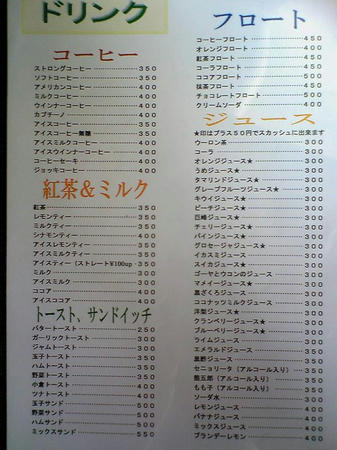 ドリンク
コーヒー
ストロングコーヒー 350
ソフトコーヒー 350
アメリカンコーヒー 400
ミルクコーヒー 400
ウインナーコーヒー 400
カプチーノ 400
アイスコーヒー 350
アイスコーヒー無糖 350
アイスミルクコーヒー 400
アイスウインナーコーヒー 400
コーヒーセーキ 400
ジョッキコーヒー 400
紅茶&ミルク
紅茶 350
レモンティー 350
ミルクティー 350
シナモンティー 400
アイスレモンティー 350
アイスミルクティー 350
アイスティー(ストレート¥100up 350
ミルク 300
アイスミルク 300
ココア 400
アイスココア 400
トースト、サンドイッチ
バタートースト 250
ガーリックトースト 300
ジャムトースト 300
玉子トースト 350
ハムトースト 350
野菜トースト 350
小倉トースト 400
ツナトースト 400
玉子サンド 500
野菜サンド 500
ハムサンド 500
ミックスサンド 550
フロート
コーヒーフロート 450
オレンジフロート 450
紅茶フロート 450
コーラフロート 450
ココアフロート 500
抹茶フロート 450
チョコレートフロート 500
クリームソーダ 400
ジュース
★印はプラス50円でスカッシュに出来ます
ウーロン茶 300
コーラ 300
オレンジジュース★ 300
うめジュース★ 300
タマリンドジュース★ 300
グレープフルーツジュース★ 300
キウイジュース★ 300
ピーチジュース★ 300
巨峰ジュース★ 300
チェリージュース★ 300
パインジュース★ 300
グロセージャジュース★ 300
イカスミジュース 300
スイカジュース★ 300
ゴーヤとウコンのジュース 300
マメイジュース★ 300
黒ざくろジュース 300
ココナッツミルクジュース 300
洋梨ジュース★ 300
クランベリージュース★ 300
ブルーベリージュース★ 300
ライムジュース 300
エメラルドジュース 350
黒酢ジュース 350
セニョリータ(アルコール入り) 350
熊五郎(アルコール入り) 350
もも子(アルコール入り) 350
ソーダ水 300
レモンジュース 400
バナナジュース 400
ミックスジュース 400
ブランデーレモン 400